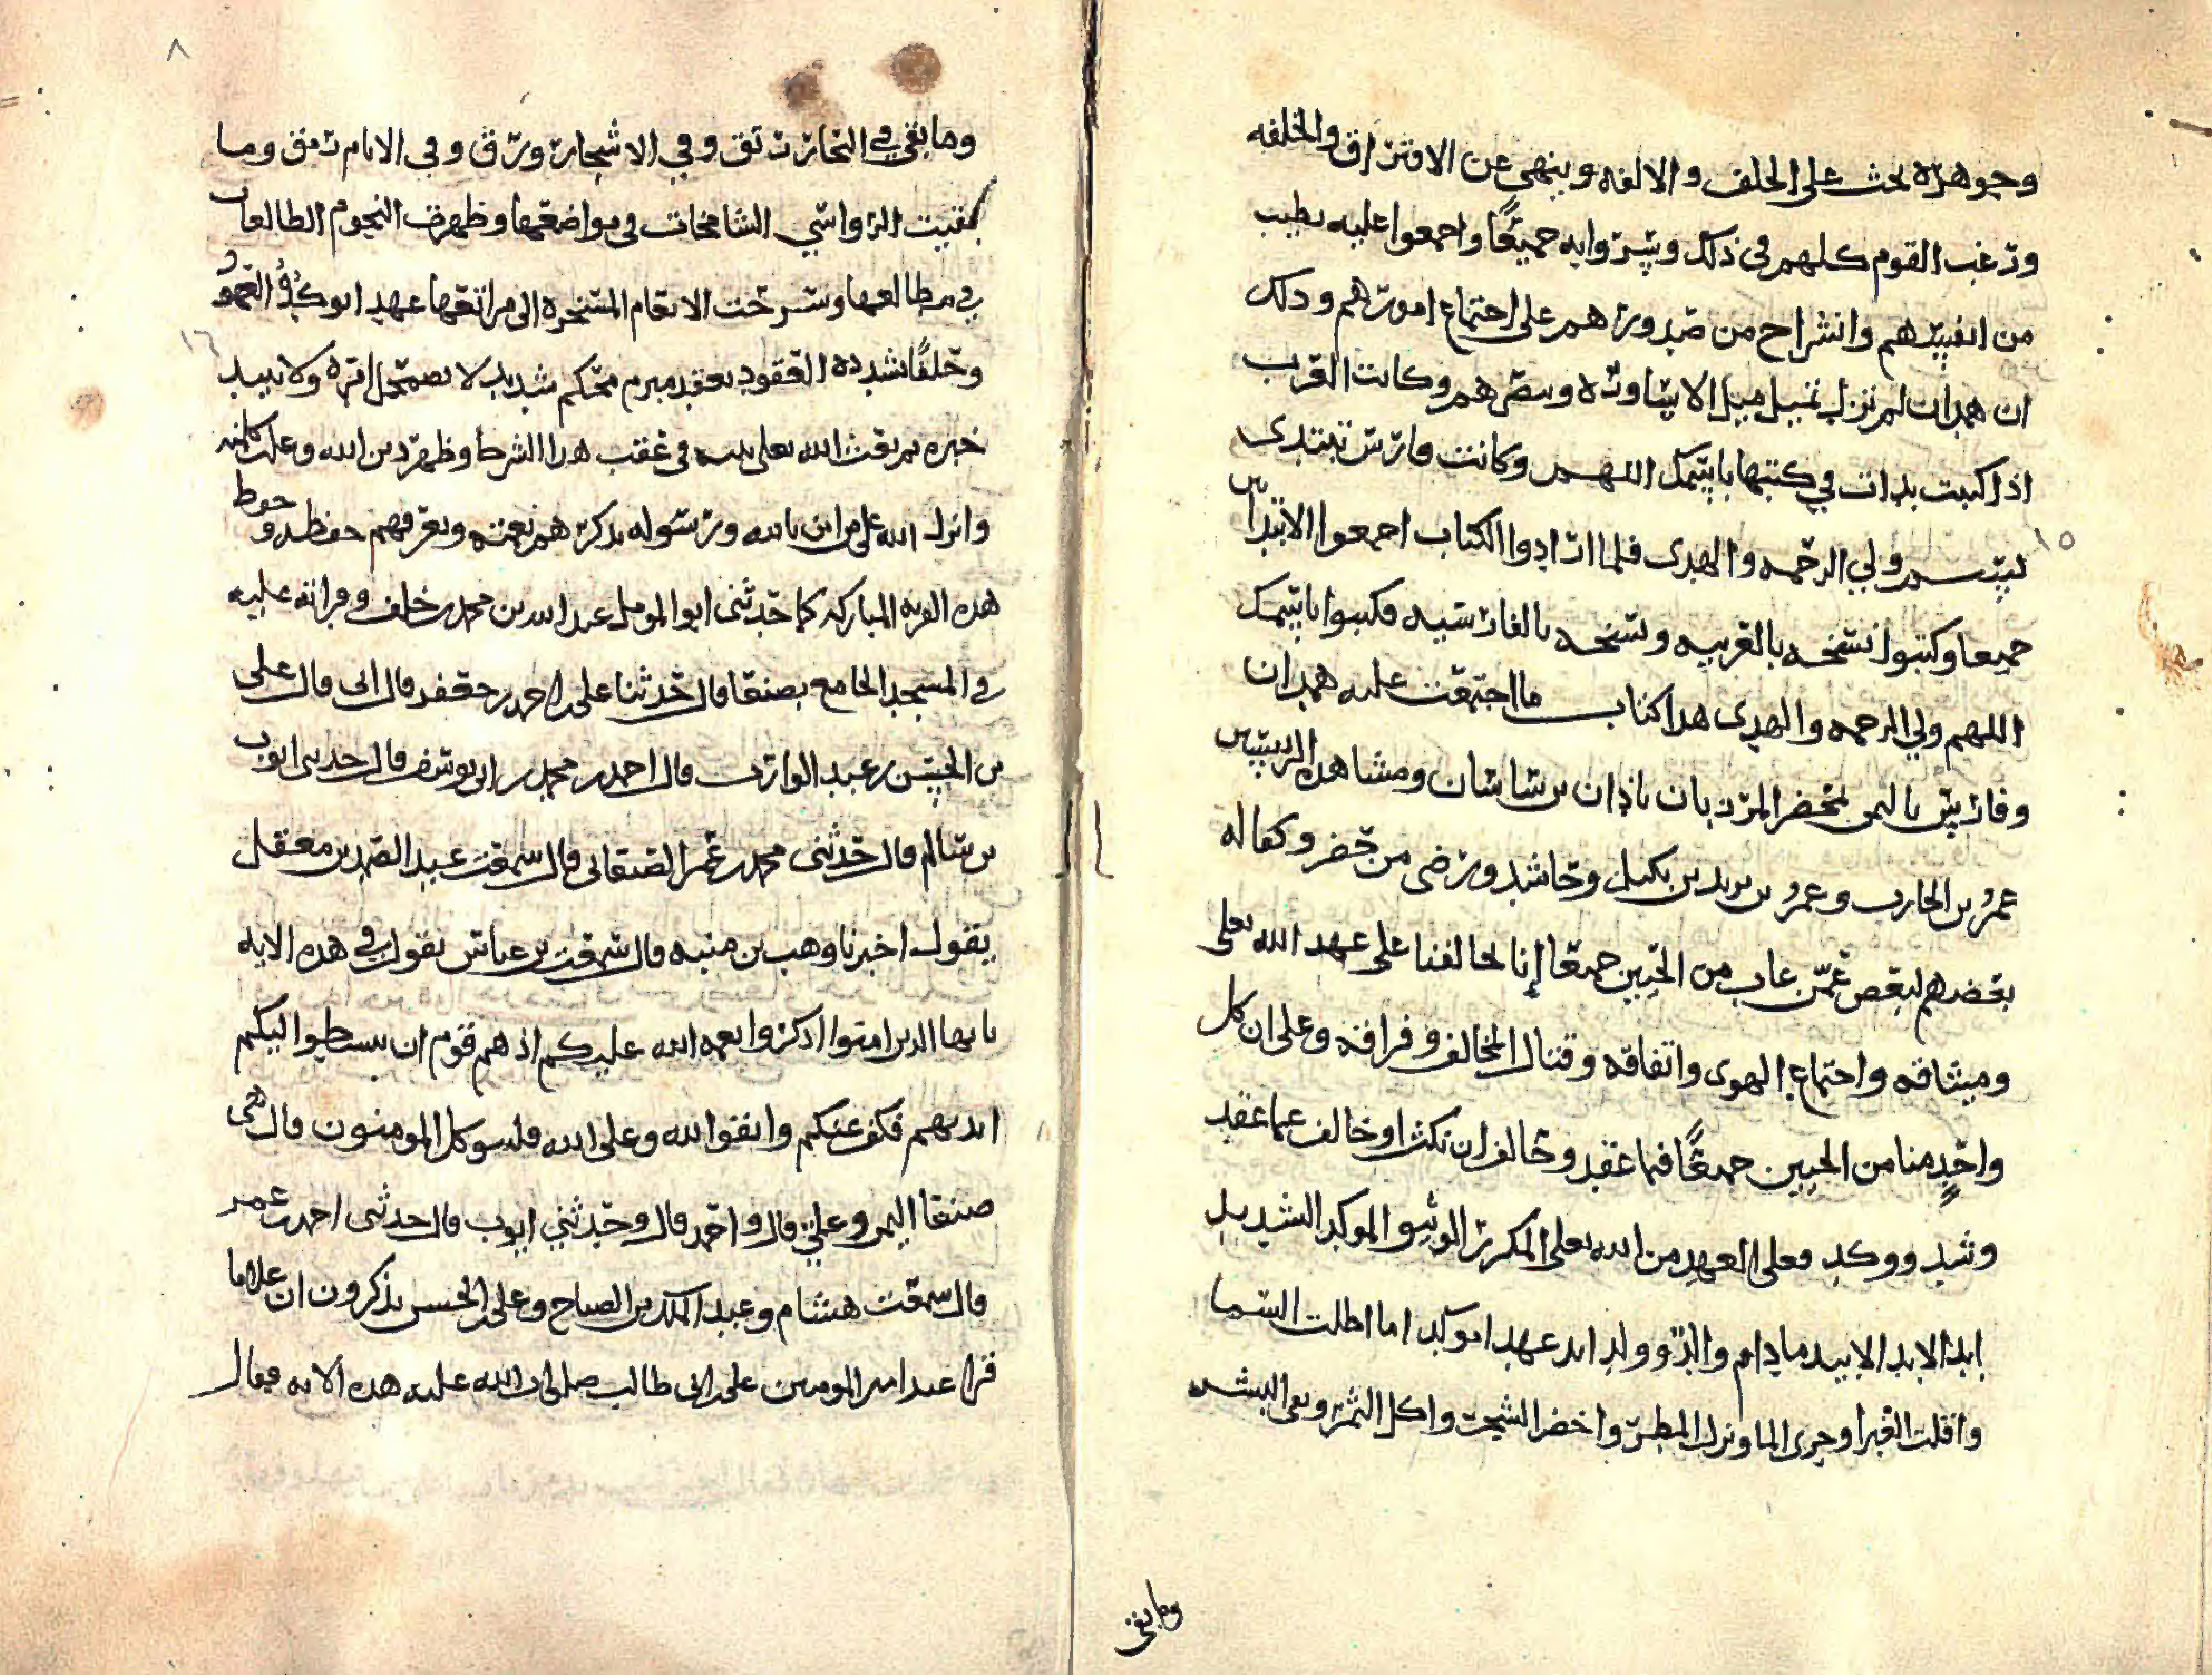 وجوهره يحث على الحلف والالفه وينهى عن الافتراق والخلفه
ورغب القوم كلهم في ذلك وسروا به جميعًا واجمعوا عليه بطيب
من انفسهم وانشراح من صدورهم على اجتماع امورهم وذلك
ان همدان لم تزل تميل ميل الاساوره وبصرهم وكانت العرب
اذا كتبت بدات في كتبها باسمك اللهم وكانت فارس تبتدى
بسم ولي الرحمه والهدى فلما ارادوا الكتاب اجمعوا الابتدا
جميعا وكتبوا نسخه بالعربيه ونسخه بالفارسيه فكتبوا باسمك
اللهم ولي الرحمه والهدى هذا كتاب ما اجتمعت عليه همدان
وفارس باليمن بمحضر المرزبان باذان بن ساسان ومشاهده الرييس
عمرُ بن الحارث وعمرُ بن يزيد بن بكيل وحاشد ورضى من حضر وكفاله
بعضهم لبعض عمّن غاب من الحيين جميعًا إنا تحالفنا على عهد الله تعلى
وميثاقه واجتماع الهوى واتفاقه وقتال المخالف وفراقه وعلى ان كل
واحدٍ منا من الحيين جميعًا فيما عقد وحالف ان نكث او خالف عما عقد
وشد ووكد فعلى العهد من الله تعلى المكرر الوثيق الموكد الشديد
ابد الابد الابيد ما دام والد وولد ابد عهدا موكدا ما اظلت السما
واقلت الغبرا وجرى الما ونزل المطر واخضر الشجر واكل الثمر وبقى البشر
وما بقى
٨
وما بقي في البحار رنق وفي الاشجار ورق وفي الانام رمق وما
بقيت الرواسي الشامخات في مواضعها وظهرت النجوم الطالعات
في مطالعها وسرحت الانعام المسخره الى مراتعها عهدا يوكد العهود
وحلفًا شدده العقود بعقد مبرم محكم شديد لا يضمحل اثره ولا يبيد
خبره ثم بعث الله تعلى نبيه في عقب هذا الشرط وظهر دين الله وعلت كلمته
وانزل الله على من امن بالله ورسوله يذكرهم نعمته ويعرفهم حفظه وحوط
هذه القريه المباركه كما حدثني ابو المومل عبد الله بن محمد بن خلف وقراته عليه
في المسجد الجامع بصنعا قال حدثنا علي بن احمد بن جعفر قال ابى قال على
بن الحسن بن عبد الوارث قال احمد بن محمد بن ابى يوسف قال حدثنى ايوب
بن سالم قال حدثنى محمد بن عمر الصنعانى قال سمعت عبد الصمد بن معقل
يقول اخبرنا وهب بن منبه قال سمعت بن عباس يقول في هذه الايه
يايها الذين امنوا اذكروا نعمه الله عليكم اذ هم قوم ان يبسطوا اليكم
ايديهم فكف عنكم واتقوا الله وعلى الله فليتوكل المومنون قال هى
صنعا اليمن وعلي قال واحمد قال وحدثني ايوب قال حدثنى احمد بن عمر
قال سمعت هشام وعبد الملك بن الصباح وعلى بن الحسن يذكرون ان غلاما
قرا عند امير المومنين على بن ابى طالب صلوات الله عليه هذه الايه فقال